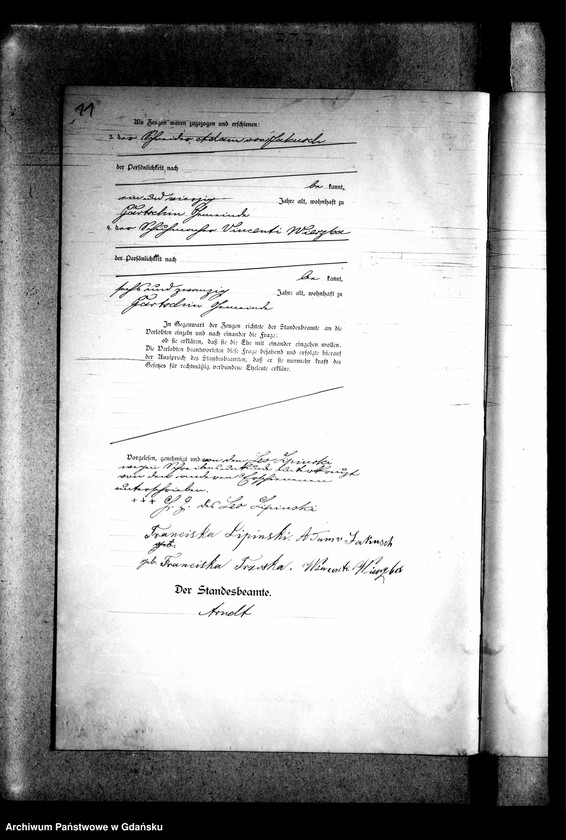 11
Als Zeugen waren zugezogen und erschienen:
3. der Schneider Adam von Jakusch
der Persönlichkeit nach
be kannt,
ein und vierzig Jahre alt, wohnhaft zu
Gartschin Gemeinde
4. der Schuhmacher Vincenti Wierzba
der Persönlichkeit nach
be kannt,
sechs und zwanzig Jahre alt, wohnhaft zu
Gartschin Gemeinde
In Gegenwart der Zeugen richtete der Standesbeamte an die
Verlobten einzeln und nach einander die Frage:
ob sie erklären, daß sie die Ehe mit einander eingehen wollen.
Die Verlobten beantworteten diese Frage bejahend und erfolgte hierauf
der Ausspruch des Standesbeamten, daß er sie nunmehr kraft des
Gesetzes für rechtmäßig verbundene Eheleute erkläre.
Vorgelesen, genehmigt und von dem Leo Lipinski
wegen Schreibensunkunde unterkreuzt
von den anderen Erschienenen
unterschrieben.
+++ H. Z. des Leo Lipinski
Franciska Lipinski. Adam v Jakusch
geb.
geb. Franciska Wincenti Wierzba
Der Standesbeamte.
Arndt
Archiwum Państwowe w Gdańsku